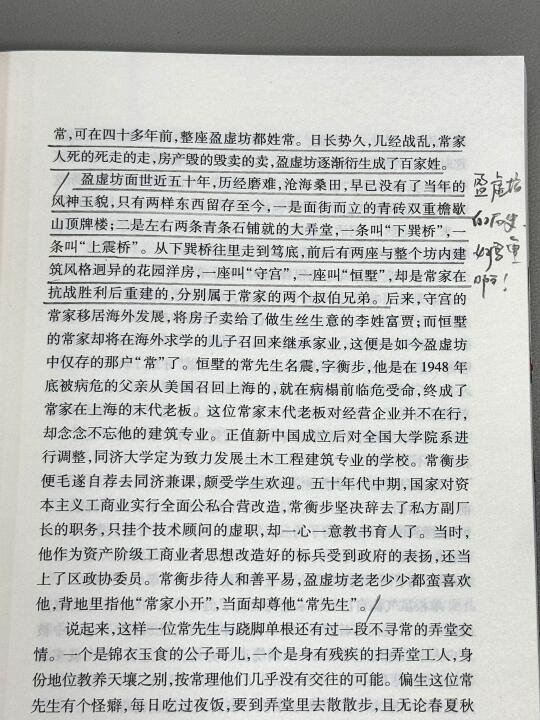 常，可在四十多年前，整座盈虚坊都姓常。日长势久，几经战乱，常家
人死的死走的走，房产毁的毁卖的卖，盈虚坊逐渐衍生成了百家姓。
盈虚坊面世近五十年，历经磨难，沧海桑田，早已没有了当年的
风神玉貌，只有两样东西留存至今，一是面街而立的青砖双重檐歇
山顶牌楼；二是左右两条青条石铺就的大弄堂，一条叫“下巽桥”，一
条叫“上震桥”。从下巽桥往里走到笃底，前后有两座与整个坊内建
筑风格迥异的花园洋房，一座叫“守宫”，一座叫“恒墅”，却是常家在
抗战胜利后重建的，分别属于常家的两个叔伯兄弟。后来，守宫的
常家移居海外发展，将房子卖给了做生丝生意的李姓富贾；而恒墅
的常家却将在海外求学的儿子召回来继承家业，这便是如今盈虚坊
中仅存的那户“常”了。恒墅的常先生名震，字衡步，他是在 1948 年
底被病危的父亲从美国召回上海的，就在病榻前临危受命，终成了
常家在上海的末代老板。这位常家末代老板对经营企业并不在行，
却念念不忘他的建筑专业。正值新中国成立后对全国大学院系进
行调整，同济大学定为致力发展土木工程建筑专业的学校。常衡步
便毛遂自荐去同济兼课，颇受学生欢迎。五十年代中期，国家对资
本主义工商业实行全面公私合营改造，常衡步坚决辞去了私方副厂
长的职务，只挂个技术顾问的虚职，却一心一意教书育人了。当时，
他作为资产阶级工商业者思想改造好的标兵受到政府的表扬，还当
上了区政协委员。常衡步待人和善平易，盈虚坊老老少少都蛮喜欢
他，背地里指他“常家小开”，当面却尊他“常先生”。
说起来，这样一位常先生与跷脚单根还有过一段不寻常的弄堂交
情。一个是锦衣玉食的公子哥儿，一个是身有残疾的扫弄堂工人，身
份地位教养天壤之别，按常理他们几乎没有交往的可能。偏生这位常
先生有个怪癖，每日吃过夜饭，要到弄堂里去散散步，且无论春夏秋
盈虚坊
的历史